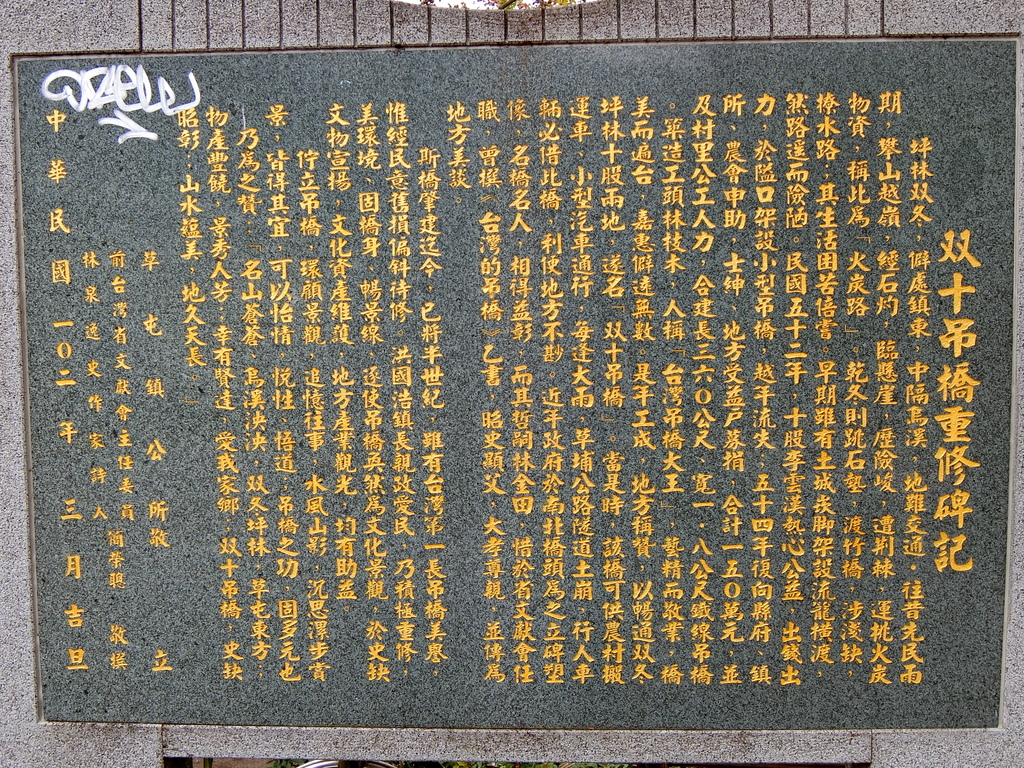 双十吊橋重修碑記
坪林双冬，僻處鎮東，中隔烏溪，地難交通．往昔先民雨
期，攀山越嶺，經石灼，臨懸崖，歷險峻，遭荆棘，運桃火炭
物資，稱此為「火炭路」。乾冬則跳石墊，渡竹橋，涉淺缺，
撩水路，其生活困苦倍嘗。早期雖有土城炎脚架設流籠橫渡，
然路遥而險陋。民國五十二年，十股李雲溪熱心公益，出錢出
力，於隘口架設小型吊橋，越年流失，五十四年復向縣府、鎮
所、農會申助，士紳、地方受益戶落捐，合計一五０萬元，並
及村里公工人力，合建長三六０公尺，寬一．八公尺鐵線吊橋
。築造工頭林枝木，人稱「台灣吊橋大王」，藝精而敬業，橋
美而遍台，嘉惠僻遠無數。是年工成，地方稱贊，以暢通双冬
坪林十股兩地，遂名「双十吊橋」。當是時，該橋可供農村搬
運車、小型汽車通行，每逢大雨，草埔公路隧道土崩，行人車
輛必借此橋，利便地方不尠。近年政府於南北橋頭為之立碑塑
像，名橋名人，相得益彰，而其哲嗣林金田，惜於省文獻會任
職，曾撰《台灣的吊橋》乙書，昭史顯父，大孝尊親，並傳為
地方美談。
斯橋肇建迄今，已將半世紀，雖有台灣第一長吊橋美譽，
惟經民意舊損偏斜待修。洪國浩鎮長親政愛民，乃積極重修，
美環境、固橋身、暢景線，遂使吊橋奐然為文化景觀，於史缺
文物宣揚，文化資產維護，地方產業觀光，均有助益。
佇立吊橋，環顧景觀，追憶往事，水風山影，沉思漯步賞
景，皆得其宜，可以怡情，悅性、悟道，吊橋之功，固多元也
乃為之贊：「名山蒼蒼，烏溪泱泱，双冬坪林，草屯東方，
物產豐饒，景秀人芳；幸有賢達，愛我家鄉，双十吊橋，史缺
昭彰；山水蘊美，地久天長。」
草屯鎮公所敬立
前台灣省文獻會主任委員
林泉逸史作家詩人 簡榮聰 敬撰
中華民國一０二年三月吉旦